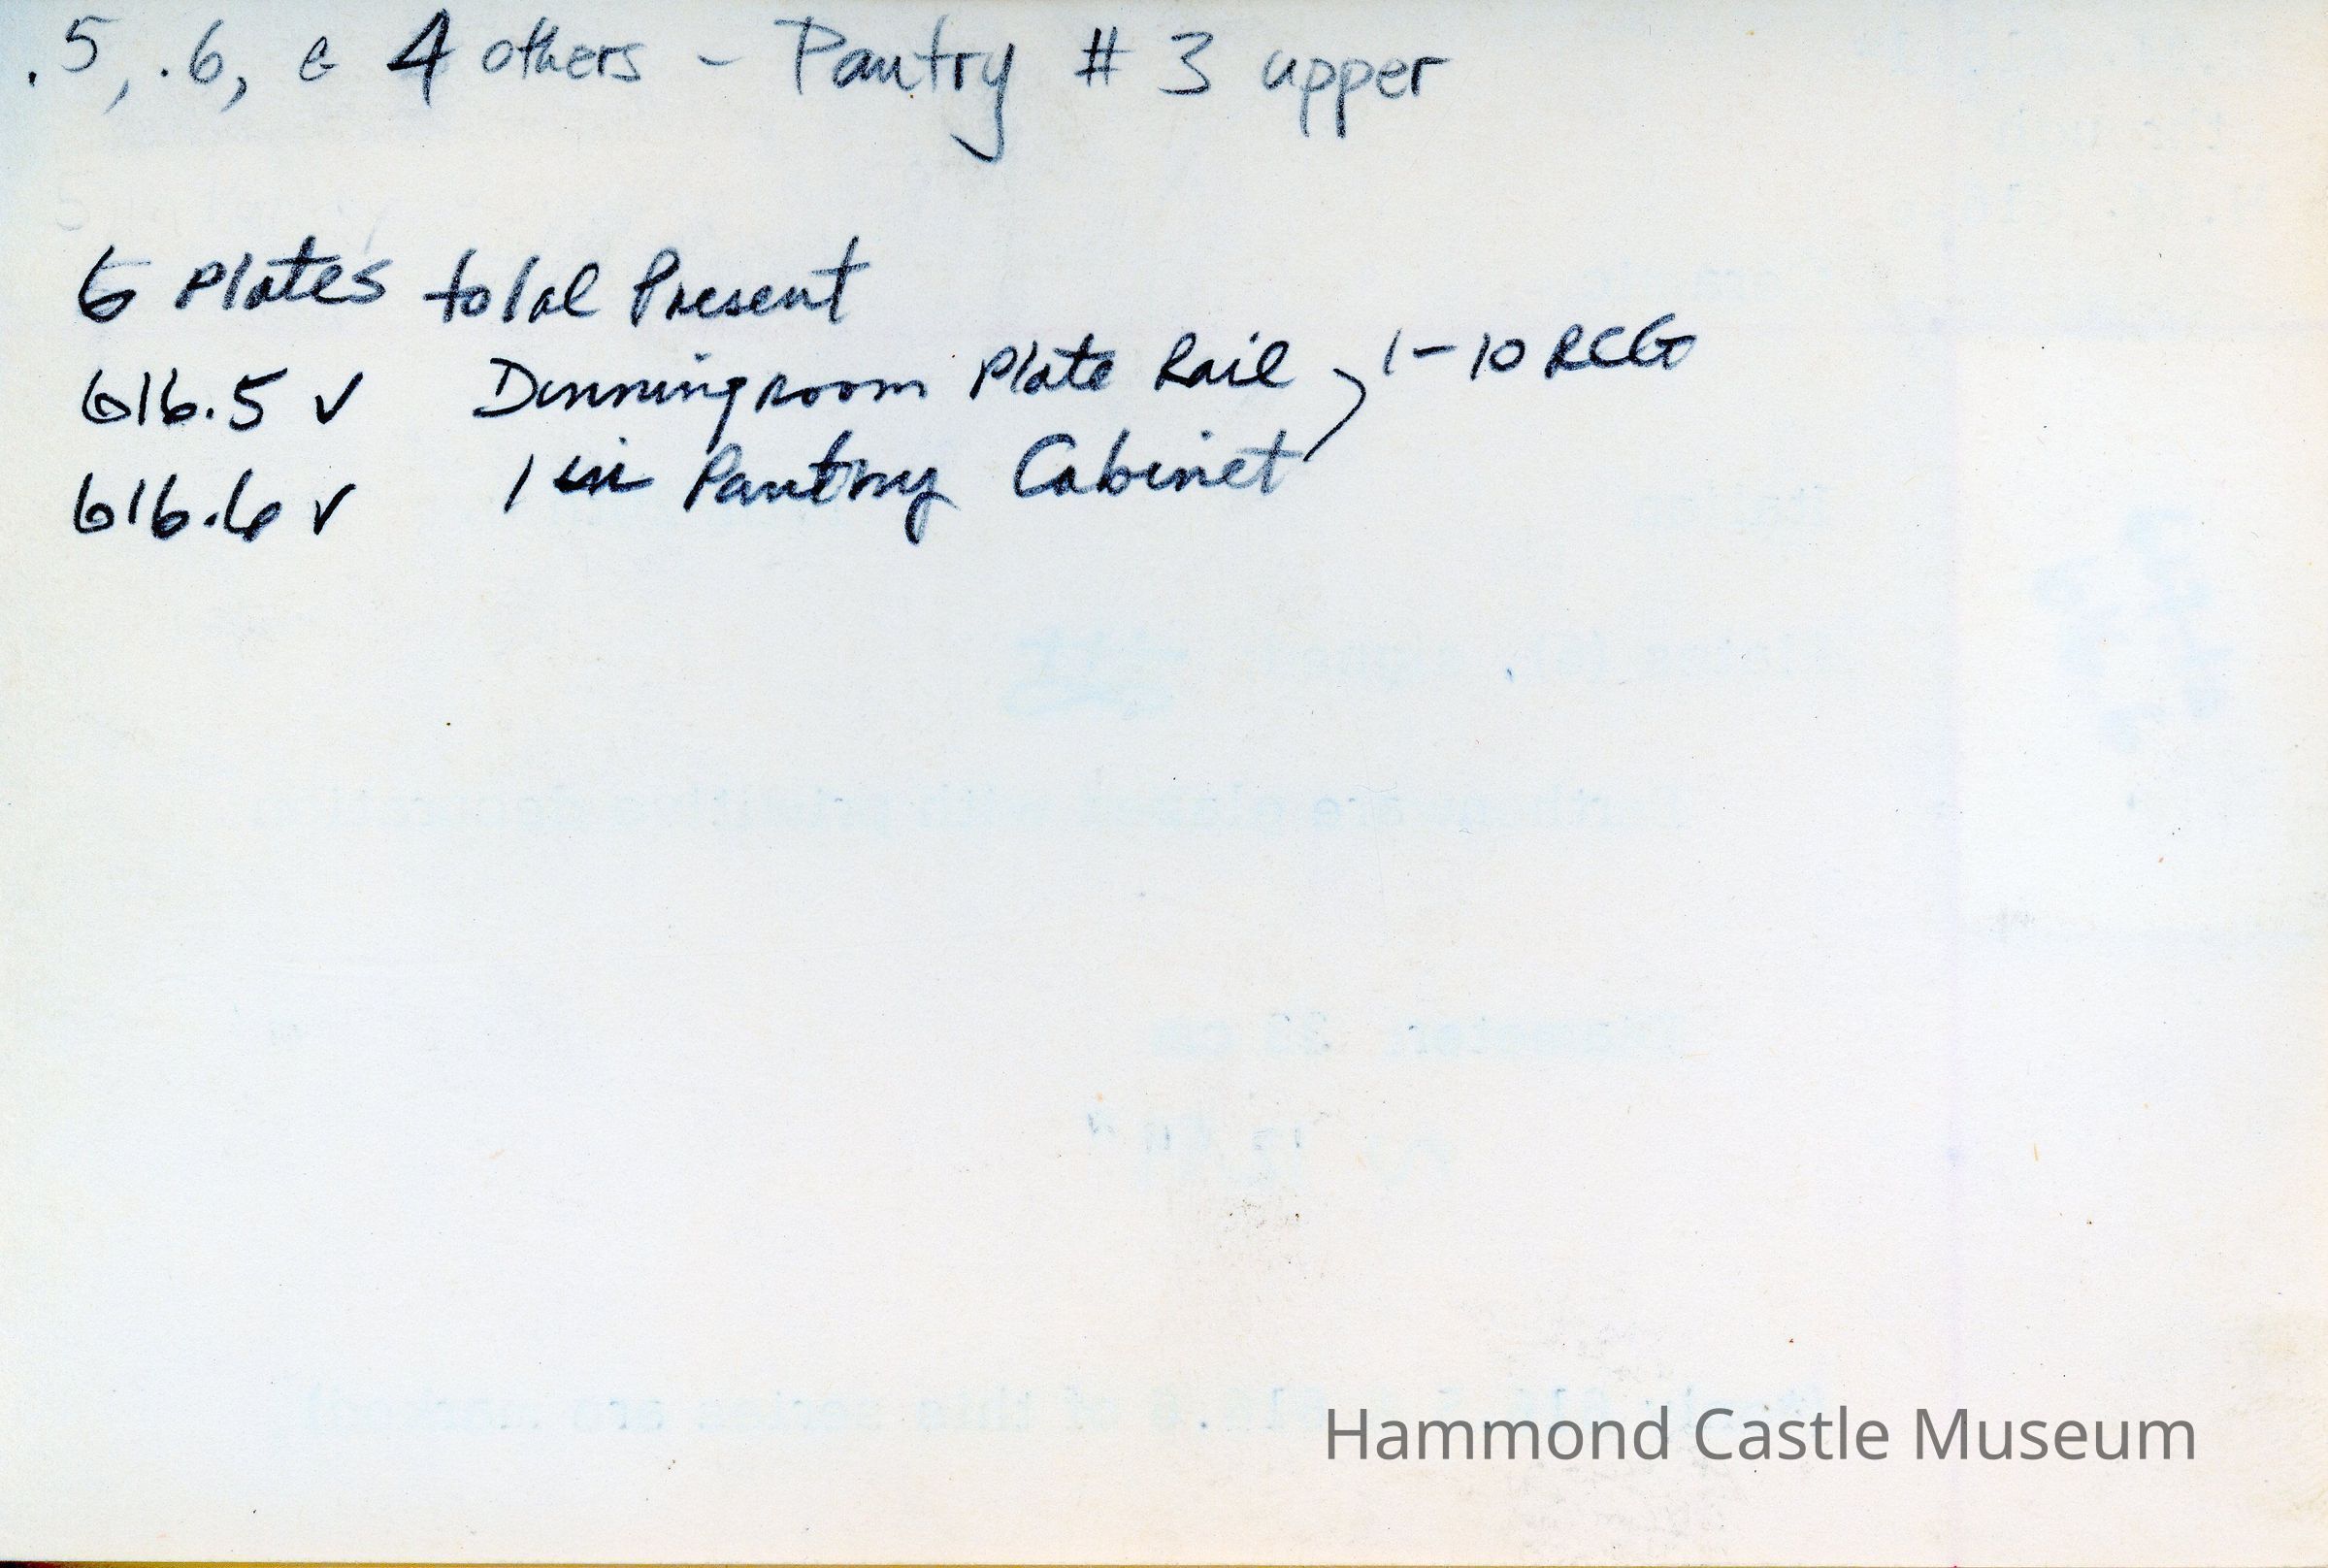 .5, .6, & 4 others - Pantry # 3 upper
6 Plates total Present
616.5 ✓ Dinningroom Plate Rail 1-10 RCG
616.6 ✓ 1 in Pantry Cabinet
Hammond Castle Museum